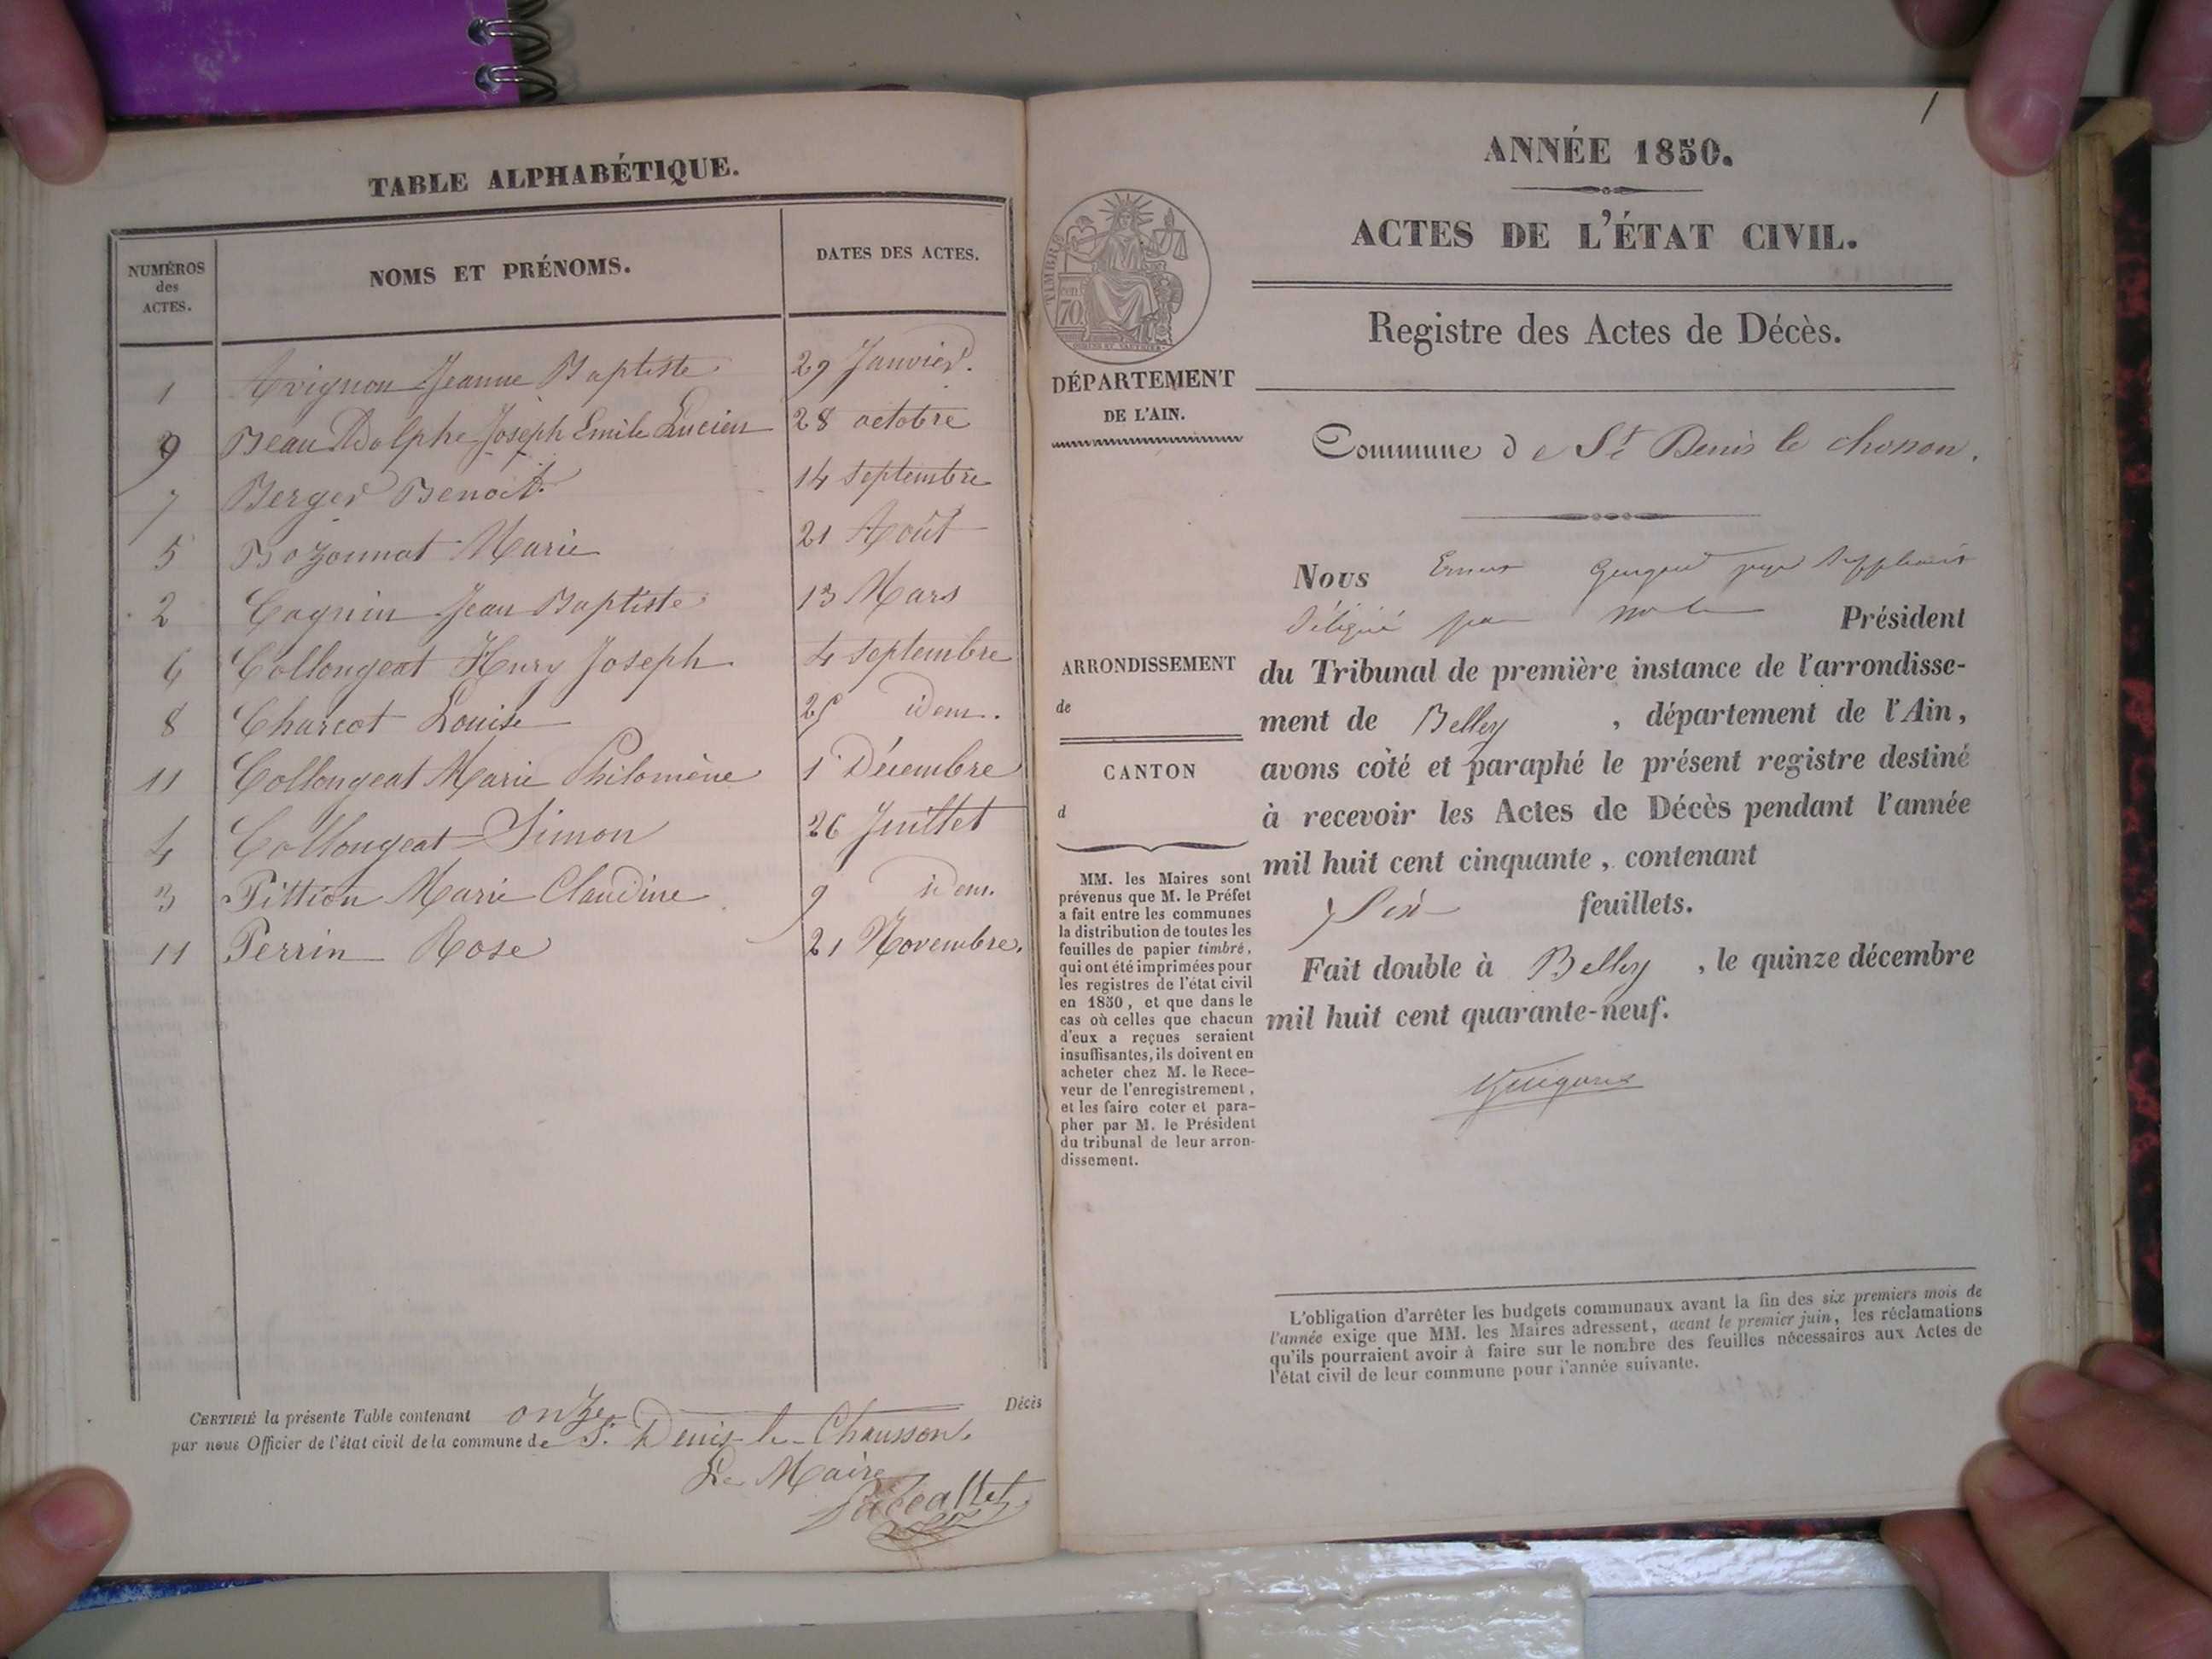 TABLE ALPHABÉTIQUE.
NUMÉROS des ACTES. NOMS ET PRÉNOMS. DATES DES ACTES.
1 Avignon Jeanne Baptiste 29 Janvier.
9 Beau Adolphe Joseph Emile Lucien 28 octobre
7 Berger Benoit. 14 septembre
5 Bozonnat Marie 21 Août
2 Cognin Jean Baptiste 13 Mars
6 Collongeat Henry Joseph 4 septembre
8 Charcot Louise 25 idem.
11 Collongeat Marie Philomène 1 Décembre
4 Collongeat Simon 26 Juillet
3 Pittion Marie Claudine 9 idem.
11 Perrin Rose 21 Novembre.
CERTIFIÉ la présente Table contenant onze Décès
par nous Officier de l'état civil de la commune de St. Denis-le-Chausson.
Le Maire
1
ANNÉE 1850.
ACTES DE L'ÉTAT CIVIL.
Registre des Actes de Décès.
TIMBRE
cent
70
DÉPARTEMENT
DE L'AIN.
Commune de St Denis le chosson.
ARRONDISSEMENT
de
CANTON
d
MM. les Maires sont
prévenus que M. le Préfet
a fait entre les communes
la distribution de toutes les
feuilles de papier timbré,
qui ont été imprimées pour
les registres de l'état civil
en 1850, et que dans le
cas où celles que chacun
d'eux a reçues seraient
insuffisantes, ils doivent en
acheter chez M. le Rece-
veur de l'enregistrement,
et les faire coter et para-
pher par M. le Président
du tribunal de leur arron-
dissement.
Nous juge suppléant
délégué par Président
du Tribunal de première instance de l'arrondisse-
ment de Belley, département de l'Ain,
avons coté et paraphé le présent registre destiné
à recevoir les Actes de Décès pendant l'année
mil huit cent cinquante, contenant
Six feuillets.
Fait double à Belley, le quinze décembre
mil huit cent quarante-neuf.
L'obligation d'arrêter les budgets communaux avant la fin des six premiers mois de
l'année exige que MM. les Maires adressent, avant le premier juin, les réclamations
qu'ils pourraient avoir à faire sur le nombre des feuilles nécessaires aux Actes de
l'état civil de leur commune pour l'année suivante.